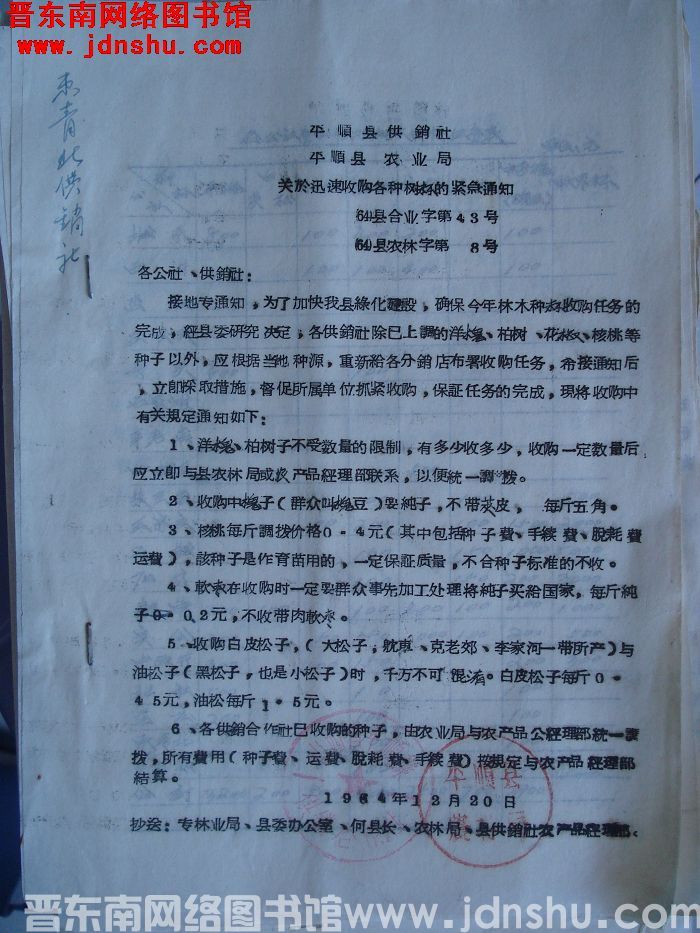 晋东南网络图书馆
www.jdnshu.com
东青北供销社
平順县供銷社
平順县农业局
关於迅速收购各种树籽的紧急通知
(64)县合业字第43号
(64)县农林字第8号
各公社、供銷社：
接地专通知，为了加快我县綠化建設，确保今年林木种籽收购任务的
完成，經县委研究决定，各供銷社除已上調的洋槐、柏树、花椒、核桃等
种子以外，应根据当地种源，重新給各分銷店布署收购任务，希接通知后
，立即采取措施，督促所属单位抓紧收购，保証任务的完成，現将收购中
有关規定通知如下：
1、洋槐、柏树子不受数量的限制，有多少收多少，收购一定数量后
应立即与县农林局或农产品經理部联系，以便統一調拨。
2、收购中槐子（群众叫槐豆）要純子，不带莢皮，每斤五角。
3、核桃每斤調拨价格0·4元（其中包括种子費、手續費、脫耗費
运費），該种子是作育苗用的，一定保証质量，不合种子标准的不收。
4、軟枣在收购时一定要群众事先加工处理将純子买給国家，每斤純
子0·02元，不收带肉軟枣。
5、收购白皮松子，（大松子，躭車、克老郊、李家河一带所产）与
油松子（黑松子，也是小松子）时，千万不可混淆。白皮松子每斤0·
45元，油松每斤1·5元。
6、各供銷合作社已收购的种子，由农业局与农产品公經理部統一調
拨，所有費用（种子費、运費、脫耗費、手續費）按規定与农产品經理部
結算。
1964年12月20日
平順县
抄送：专林业局、县委办公室、何县长、农林局、县供銷社农产品經理部。
晋东南网络图书馆 www.jdnshu.com